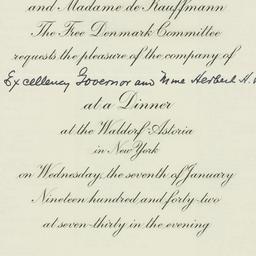 and Madame de Kauffmann
The Free Denmark Committee
requests the pleasure of the company of
Excellency Governor and Mme Herbert H.
at a Dinner
at the Waldorf-Astoria
in New York
on Wednesday, the seventh of January
Nineteen hundred and forty-two
at seven-thirty in the evening